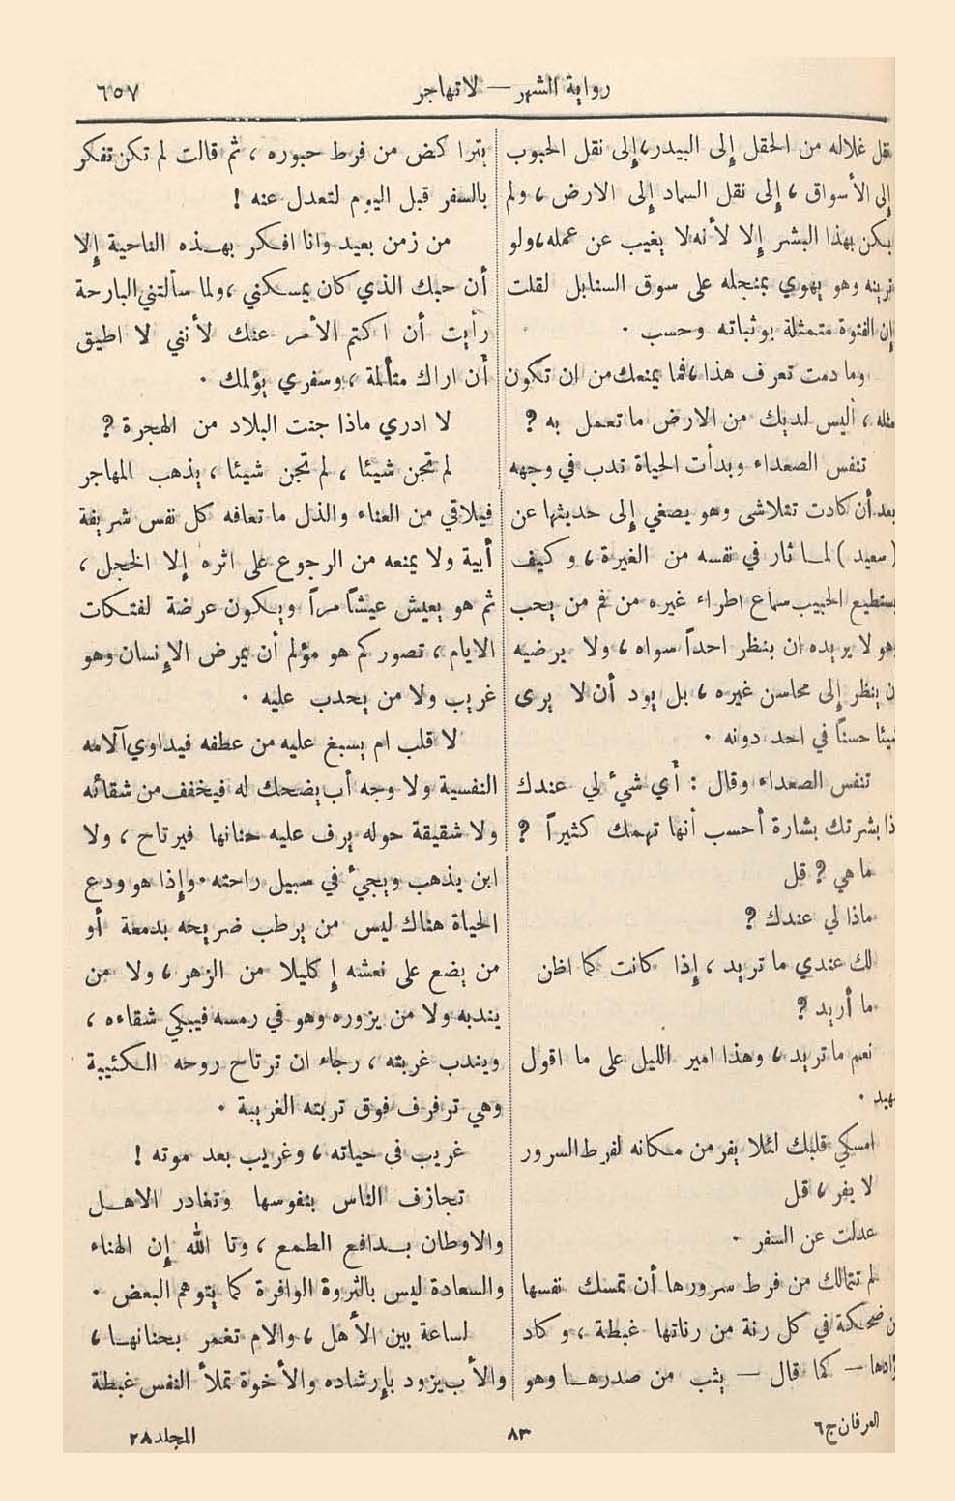 رواية الشهر — لا تهاجر
٦٥٧
نقل غلاله من الحقل إلى البيدر، إلى نقل الحبوب
إلى الأسواق، إلى نقل السماد إلى الارض، ولم
يكن بهذا البشر إلا لأنه لا يغيب عن عمله، ولو
ترينه وهو يهوي بمنجله على سوق السنابل لقلت
إن الفتوة متمثلة بوثباته وحسب .
وما دمت تعرف هذا، فما يمنعك من ان تكون
مثله، أليس لديك من الارض ما تعمل به ?
تنفس الصعداء وبدأت الحياة تدب في وجهه
بعد أن كادت تتلاشى وهو يصغي إلى حديثها عن
( سعيد ) لما ثار في نفسه من الغيرة، وكيف
يستطيع الحبيب سماع اطراء غيره من فم من يحب
وهو لا يريده ان ينظر احداً سواه، ولا يرضيه
ان ينظر إلى محاسن غيره، بل يود أن لا يرى
شيئا حسناً في احد دونه .
تنفس الصعداء وقال : أي شيء لي عندك
إذا بشرتك بشارة أحسب أنها تهمك كثيراً ?
ما هي ? قل
ماذا لي عندك ?
لك عندي ما تريد، إذا كانت كما اظن
ما أريد ?
نعم ما تريد، وهذا امير الليل على ما اقول
شهيد .
امسكي قلبك لئلا يفر من مكانه لفرط السرور
لا يفر، قل
عدلت عن السفر .
لم تتمالك من فرط سرورها أن تمسك نفسها
عن ضحكة في كل رنة من رناتها غبطة، وكاد
فؤادها — كما قال — يثب من صدرها وهو
يتراكض من فرط حبوره، ثم قالت لم تكن تفكر
بالسفر قبل اليوم لتعدل عنه !
من زمن بعيد وانا افكر بهذه الناحية إلا
أن حبك الذي كان يمسكني، ولما سألتني البارحة
رأيت أن اكتم الأمر عنك لأنني لا اطيق
أن اراك متألمة، وسفري يؤلمك .
لا ادري ماذا جنت البلاد من الهجرة ?
لم تجن شيئا، لم تجن شيئا، يذهب المهاجر
فيلاقي من العناء والذل ما تعافه كل نفس شريفة
أبية ولا يمنعه من الرجوع على اثره إلا الخجل،
ثم هو يعيش عيشاً مراً ويكون عرضة لفتكات
الايام، تصور كم هو مؤلم أن يمرض الإنسان وهو
غريب ولا من يحدب عليه .
لا قلب ام يسبغ عليه من عطفه فيداوي آلامه
النفسية ولا وجه أب يضحك له فيخفف من شقائه
ولا شقيقة حوله يرف عليه حنانها فيرتاح، ولا
ابن يذهب ويجيء في سبيل راحته . وإذا هو ودع
الحياة هناك ليس من يرطب ضريحه بدمعة أو
من يضع على نعشه إكليلا من الزهر، ولا من
يندبه ولا من يزوره وهو في رمسه فيبكي شقاءه،
ويندب غربته، رجاء ان ترتاح روحه الكئيبة
وهي ترفرف فوق تربته الغريبة .
غريب في حياته، وغريب بعد موته !
تجازف الناس بنفوسها وتغادر الاهل
والاوطان بدافع الطمع، وتا الله إن الهناء
والسعادة ليس بالثروة الوافرة كما يتوهم البعض .
لساعة بين الأهل، والام تغمر بحنانها،
والأب يزود بإرشاده والأخوة تملأ النفس غبطة
العرفان ج٦
٨٣
المجلد ٢٨